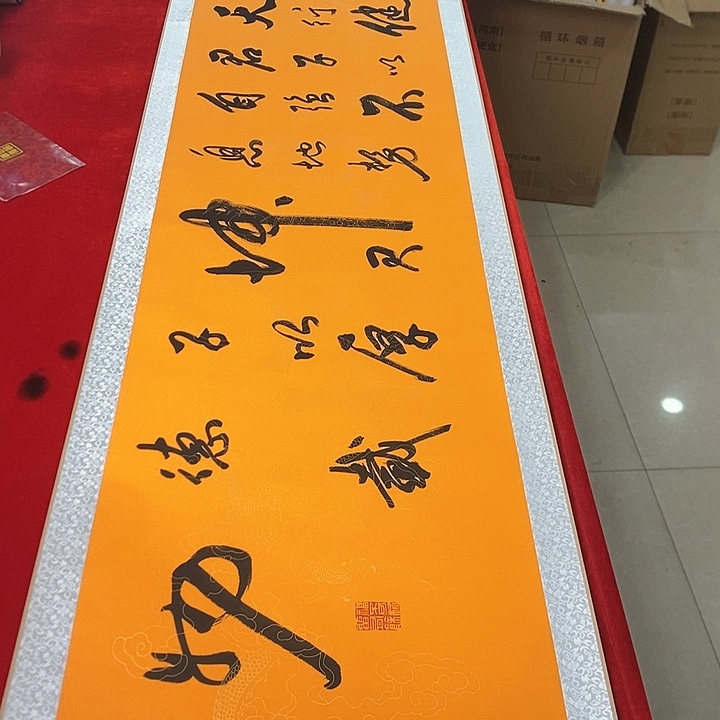 天行健
君子以
自强不
息地势
坤君
子以厚
德载
物
[河南]
硬盒]
循环烟箱